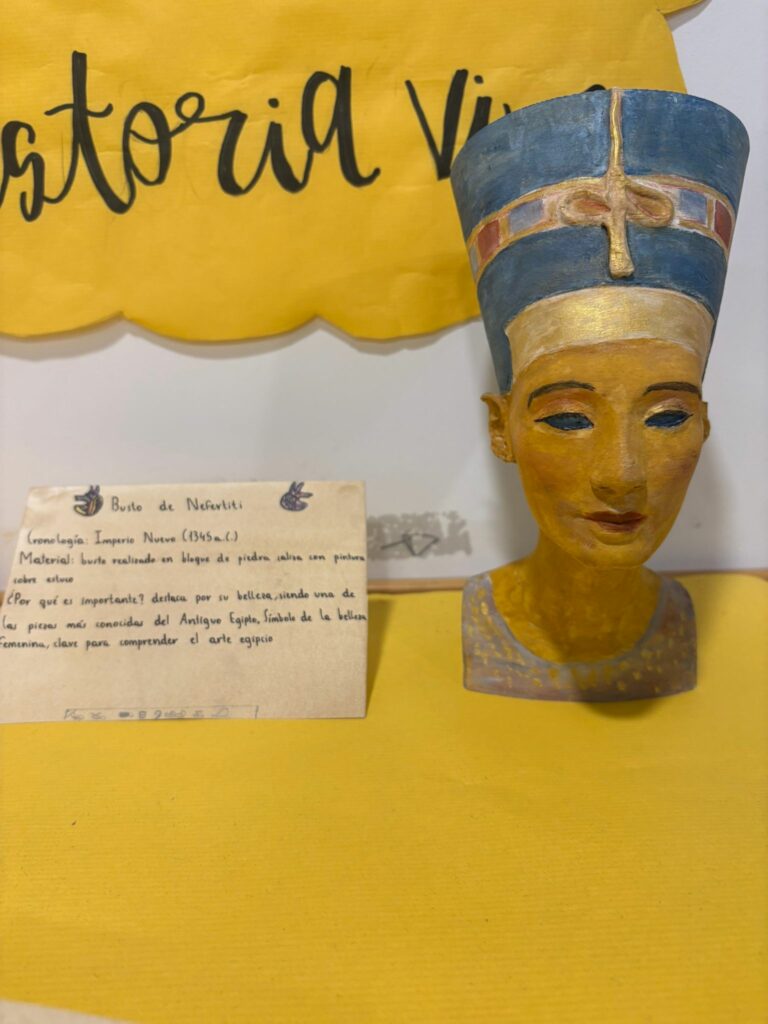 storia Viva
Busto de Nefertiti
Cronología: Imperio Nuevo (1345 a.C.)
Material: busto realizado en bloque de piedra caliza con pintura
sobre estuco
¿Por qué es importante? destaca por su belleza, siendo una de
las piezas más conocidas del Antiguo Egipto, Símbolo de la belleza
femenina, clave para comprender el arte egipcio